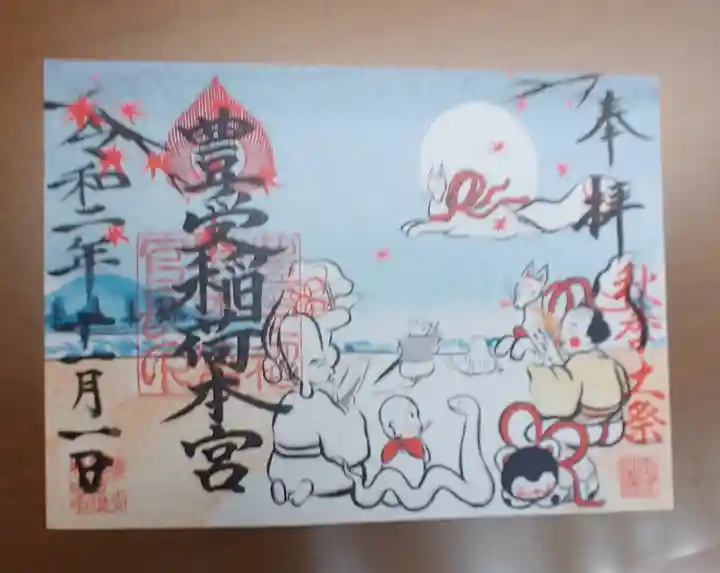 奉拝
秋季大祭
豊栄稲荷本宮
令和二年十一月一日